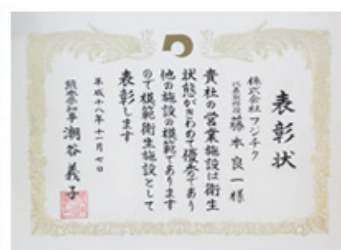 表彰状
株式会社 フジチク
代表取締役 藤本良一様
貴社の営業施設は衛生
状態がきわめて優秀であり
他の施設の模範であります
ので模範衛生施設として
表彰します
平成十八年十一月七日
熊本県知事 潮谷義子